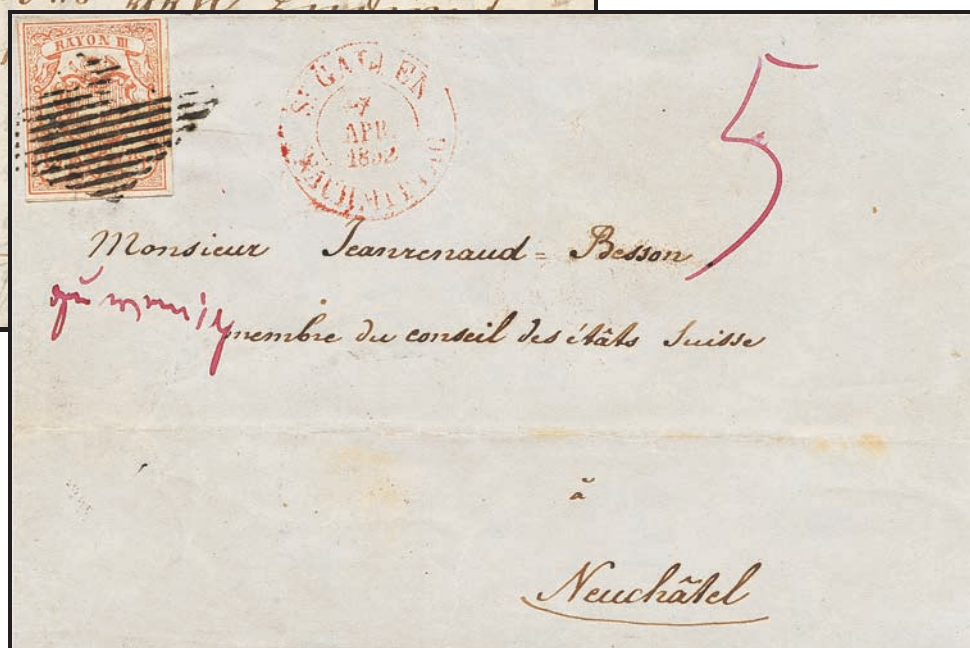 RAYON III
ST GALLEN
7
APR.
1852
NACHMITTAG
5
Monsieur Jeanrenaud = Besson
membre du conseil des états Suisse
à
Neuchâtel